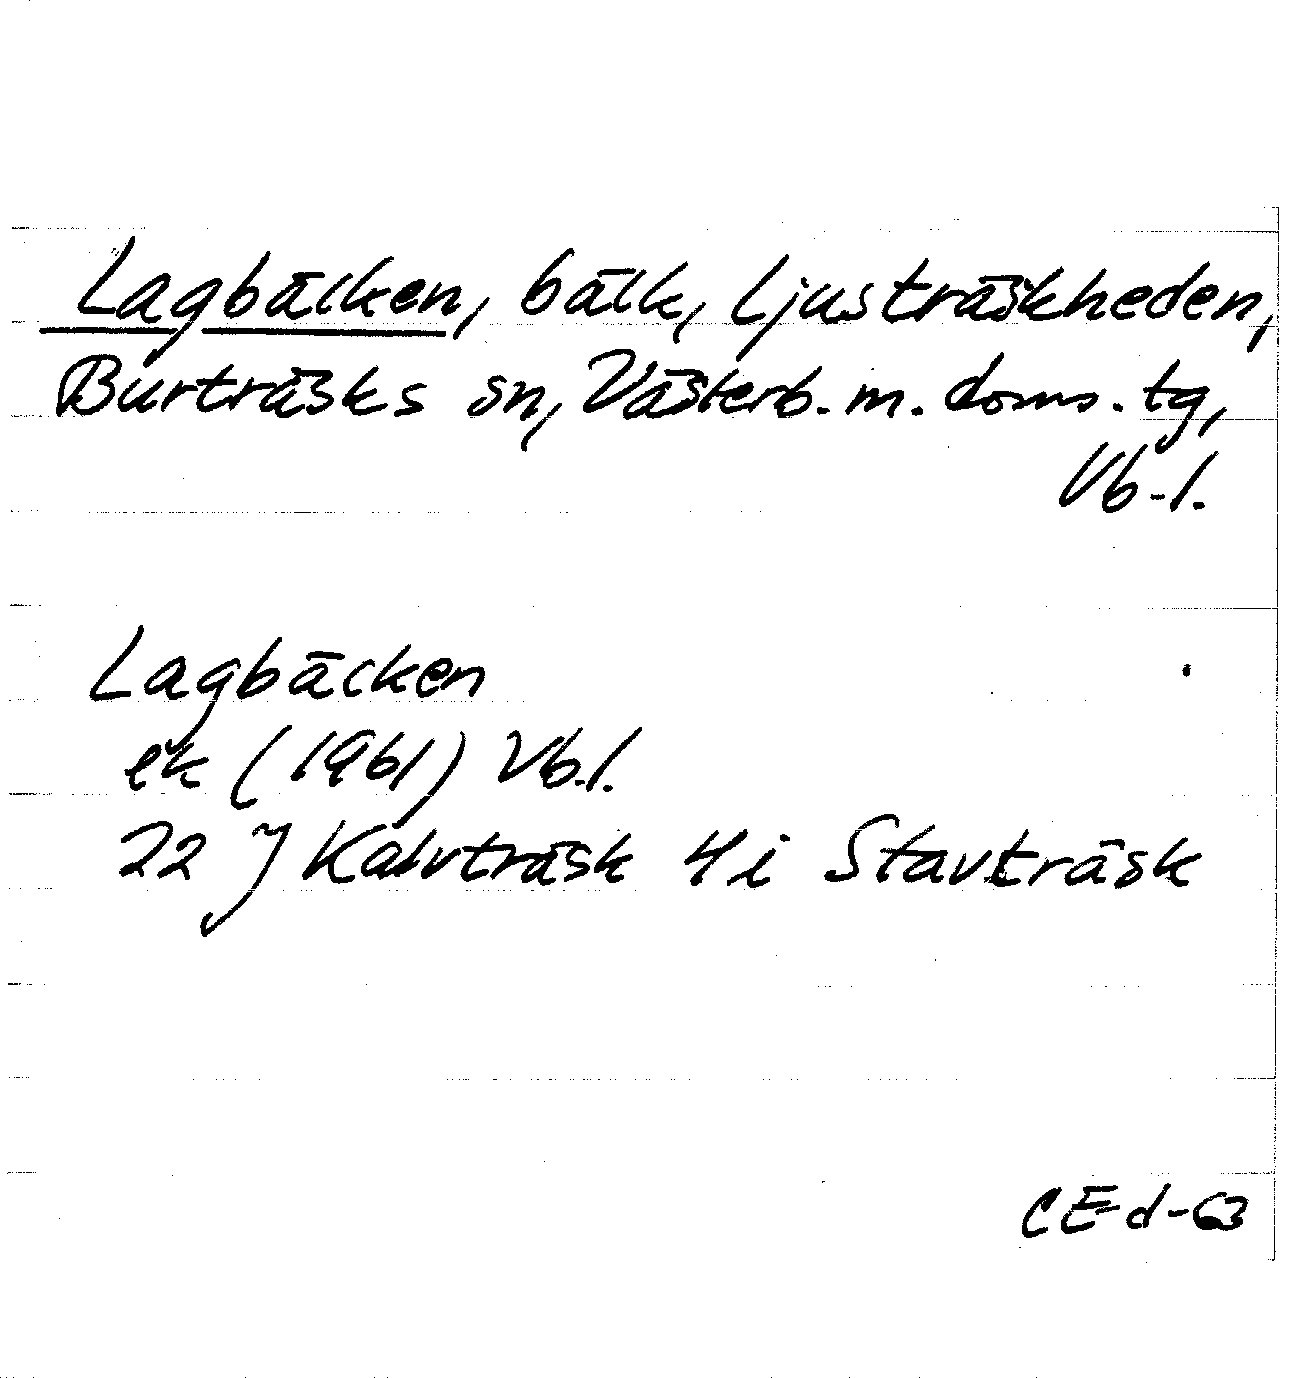 Lagbäcken, bäck, Ljusträskheden,
Burträsks sn, Västerb. m. doms. tg,
Vb-l.
Lagbäcken
ek (1961) Vb.l.
22 J Kalvträsk 4i Stavträsk
CEd-63